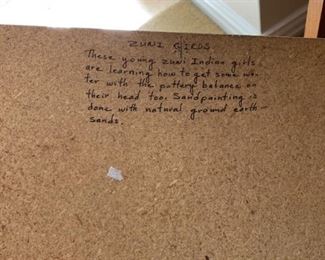 ZUNI GIRLS
These young zuni Indian girls
are learning how to get some wa-
ter with the pottery balance on
their head too. Sandpainting is
done with natural ground earth
sands.